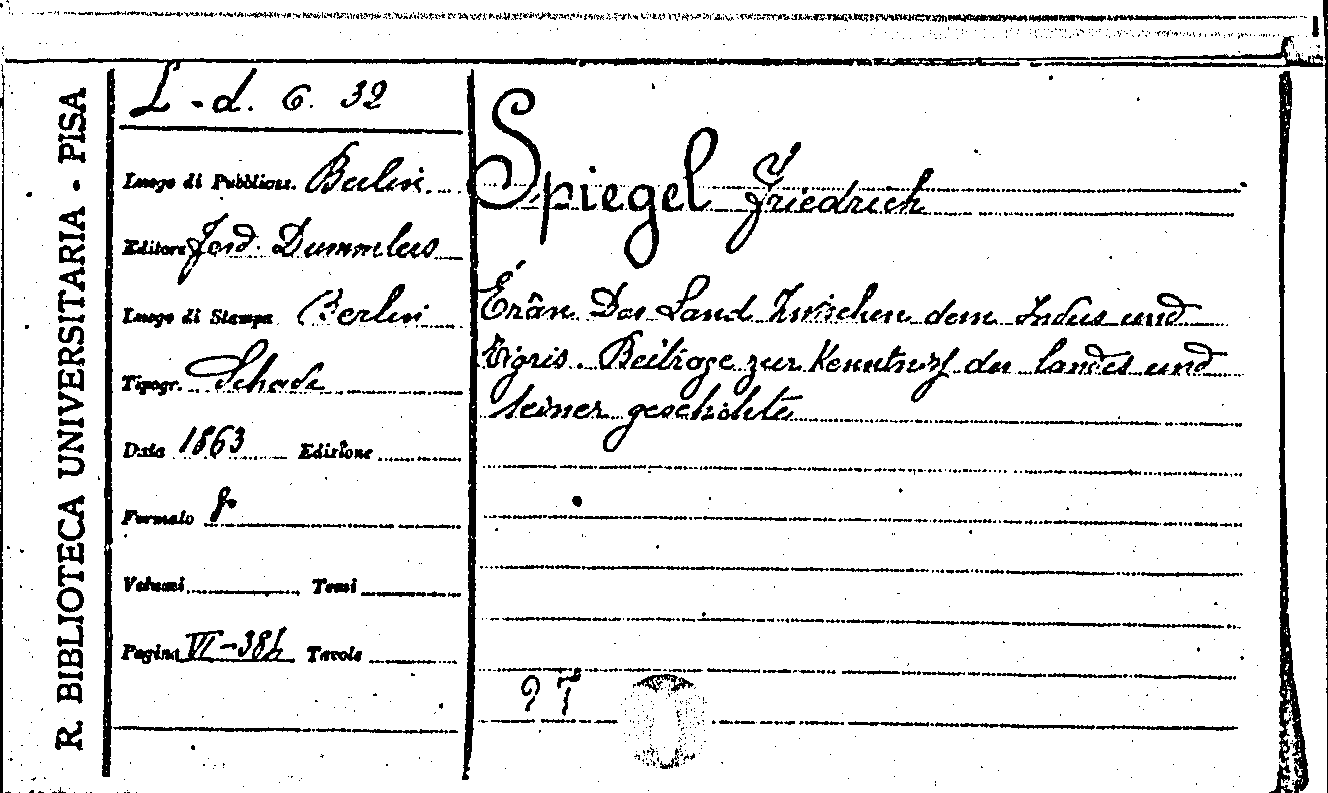 R. BIBLIOTECA UNIVERSITARIA - PISA
L - d. 6. 32
Luogo di Pubblicaz. Berlin
Editore Ferd. Dummlers
Luogo di Stampa Berlin
Tipogr. Schade
Data 1863 Edizione
Formato 8°
Volumi Tomi
Pagine VI-384 Tavole
Spiegel Friedrich
Érân Das Land Zwischen dem Indus und
Tigris. Beitrage zur Kenntniss des landes und
seiner geschichte